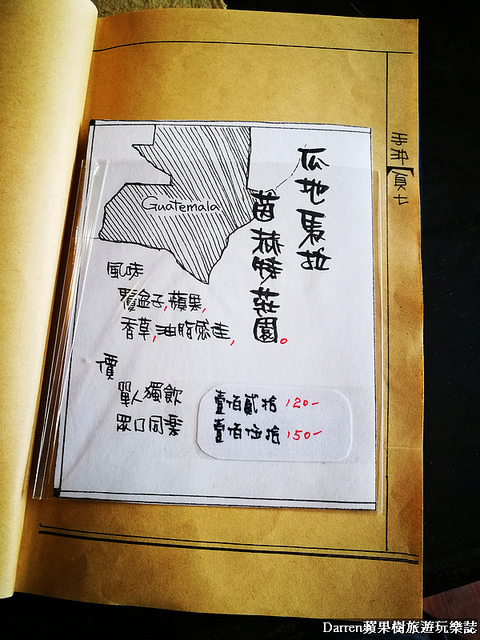 瓜地馬拉
茵赫特莊園。
Guatemala
風味
覆盆子,蘋果,
香草,油脂感佳,
價
單人獨飲
眾口同桌
壹佰貳拾 120-
壹佰伍拾 150-
手沖
頁七
Darren蘋果樹旅遊玩樂誌